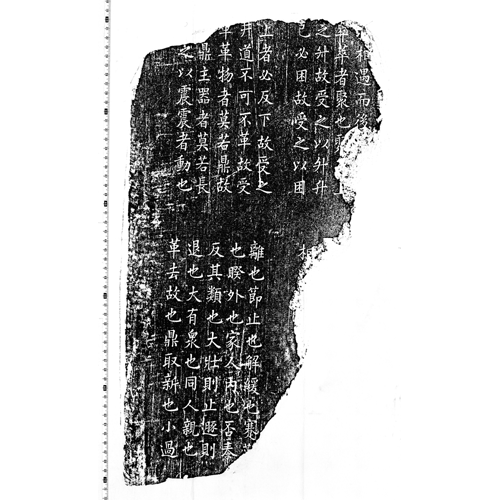 相遇而後
萃者聚也
之升故受之以升升
已必困故受之以困
上者必反下故受之
井道不可不革故受
革物者莫若鼎故
鼎主器者莫若長
之以震震者動也
離也節止也解緩也蹇
也睽外也家人內也否泰
反其類也大壯則止遯則
退也大有衆也同人親也
革去故也鼎取新也小過